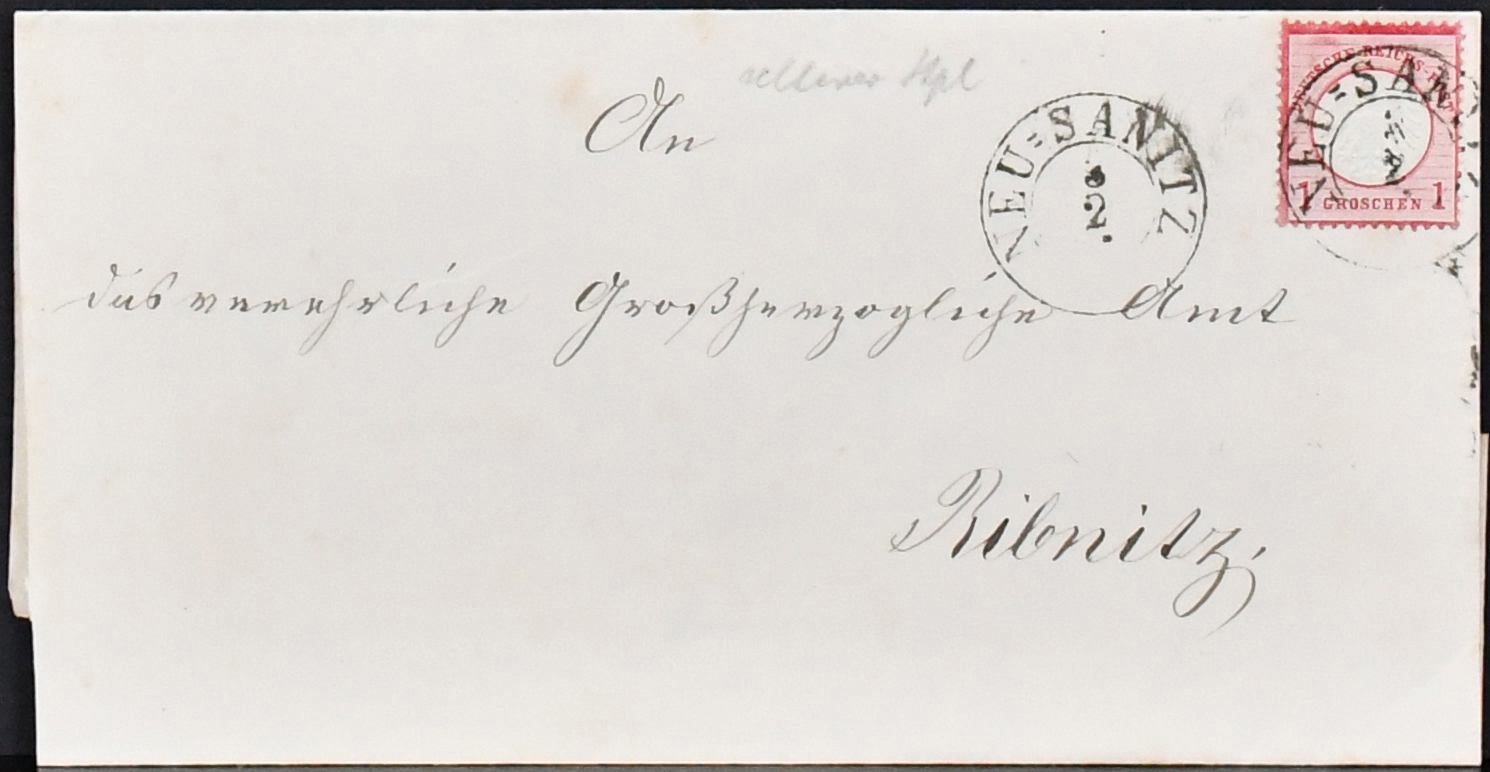 seltener Stpl
An
NEU=SANITZ
2
DEUTSCHE REICHS-POST
NEU=SANITZ
1 GROSCHEN 1
das verehrliche Großherzogliche Amt
Ribnitz,